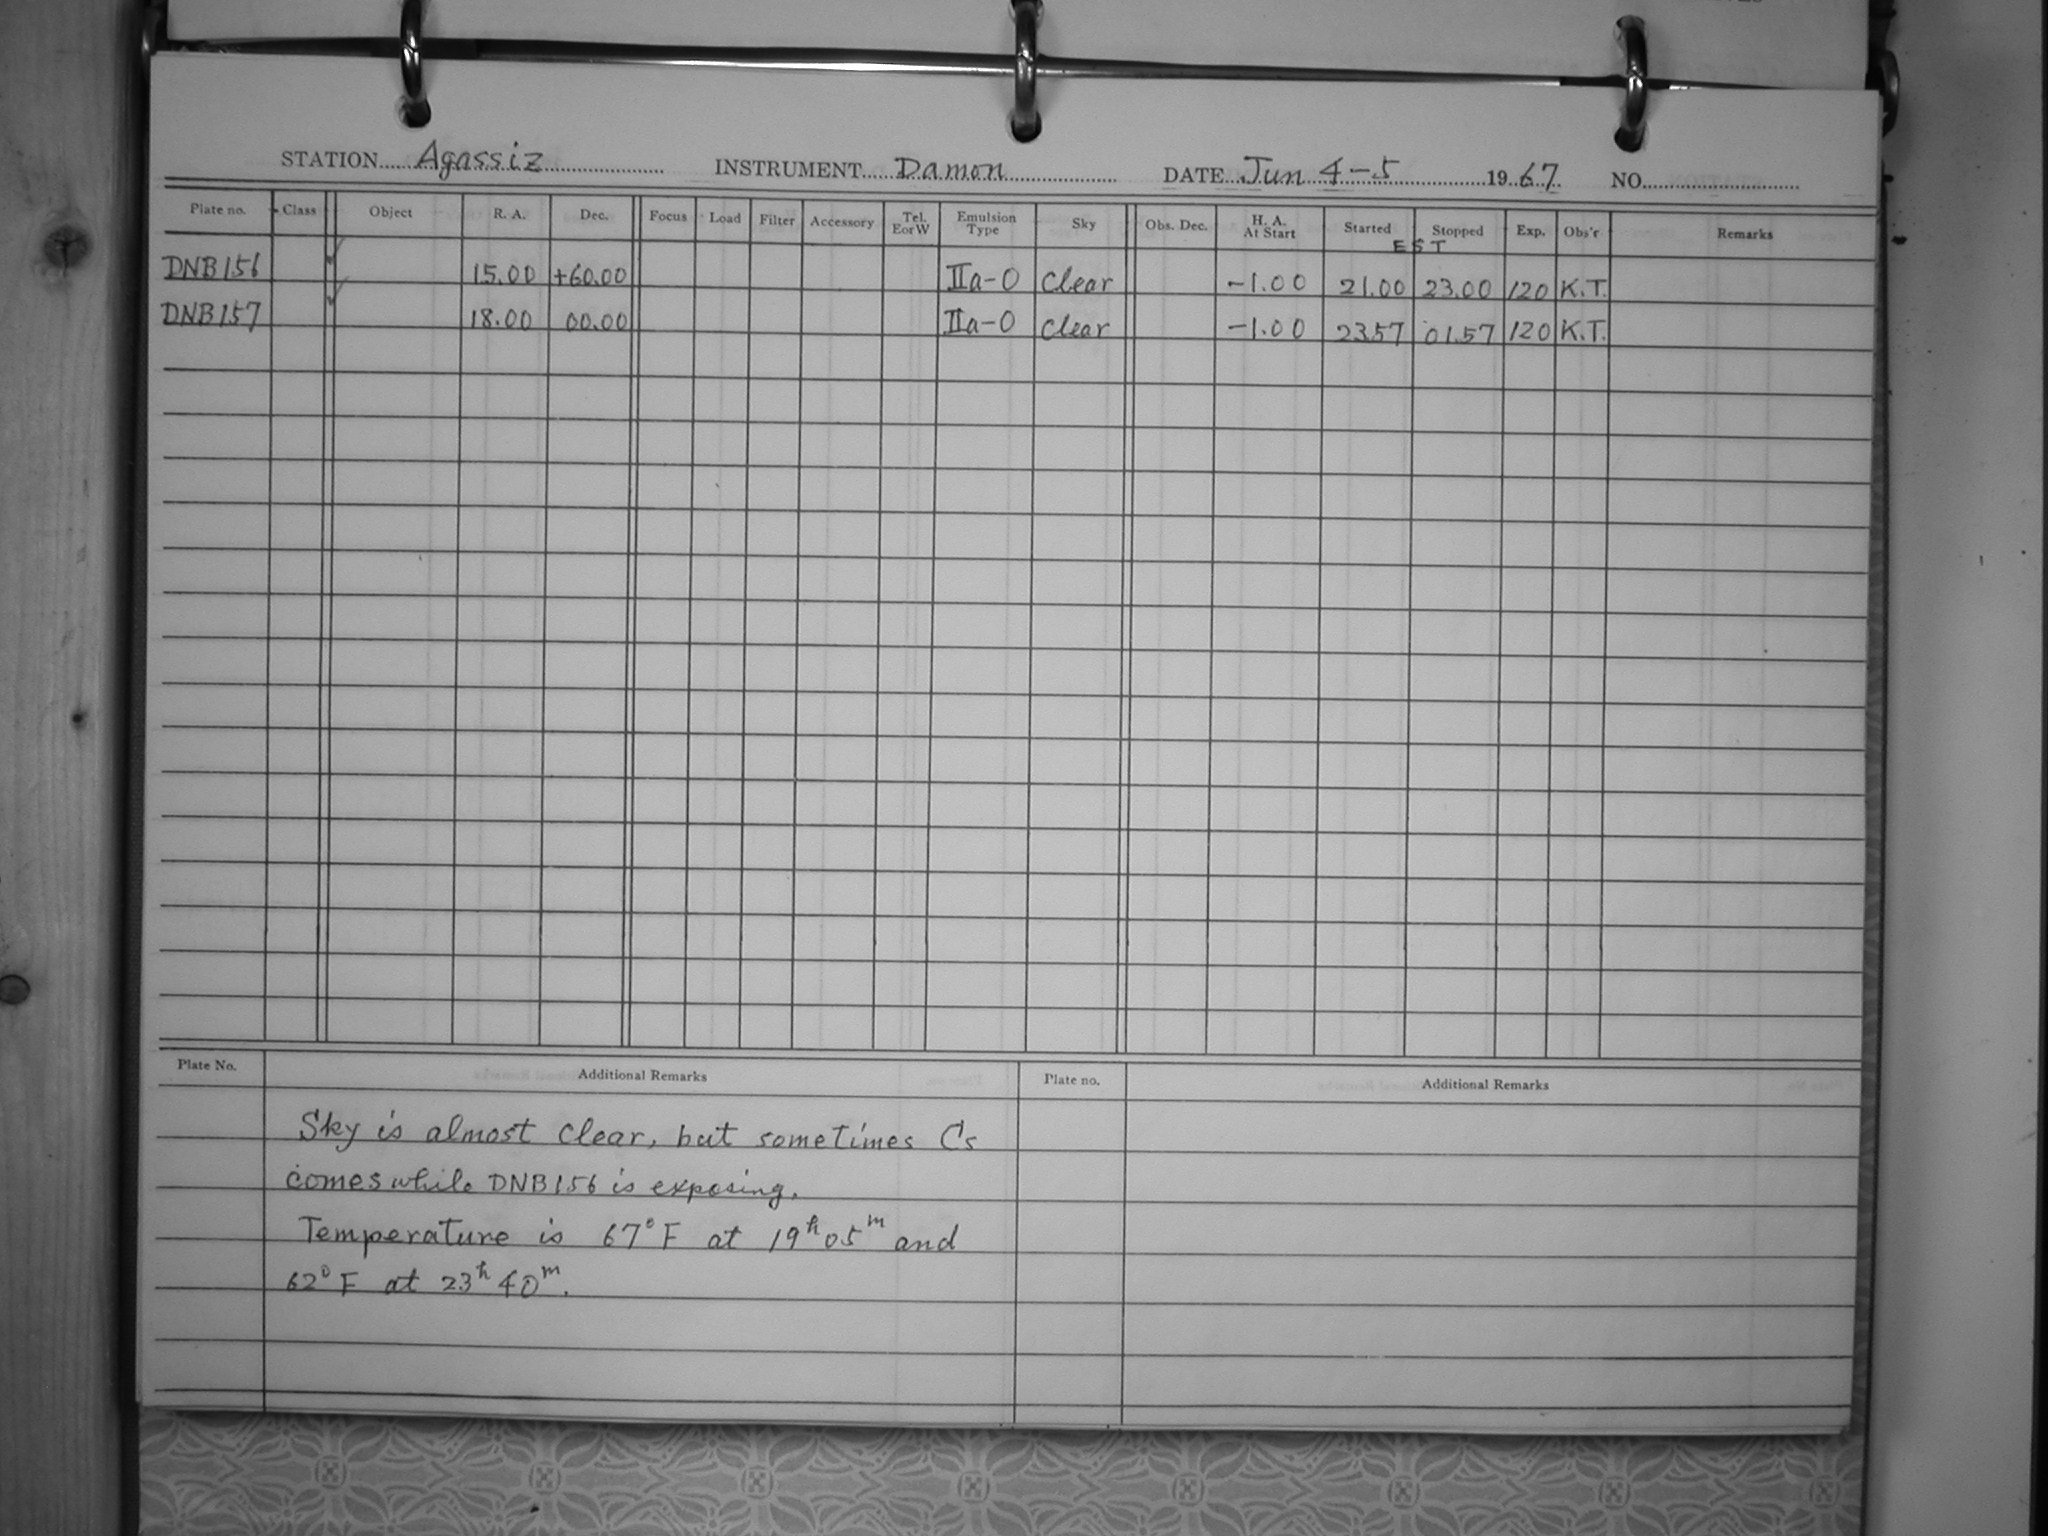 STATION Agassiz INSTRUMENT Damon DATE Jun 4-5 1967 NO.
Plate no. Class Object R. A. Dec. Focus Load Filter Accessory Tel. E or W Emulsion Type Sky Obs. Dec. H. A. At Start Started Stopped Exp. Obs'r Remarks
EST
DNB156 ✓ 15.00 +60.00 IIa-O Clear -1.00 21.00 23.00 120 K.T.
DNB157 ✓ 18.00 00.00 IIa-O Clear -1.00 23.57 01.57 120 K.T.
Plate No. Additional Remarks Plate no. Additional Remarks
Sky is almost clear, but sometimes Cs
comes while DNB156 is exposing.
Temperature is 67°F at 19h05m and
62°F at 23h40m.